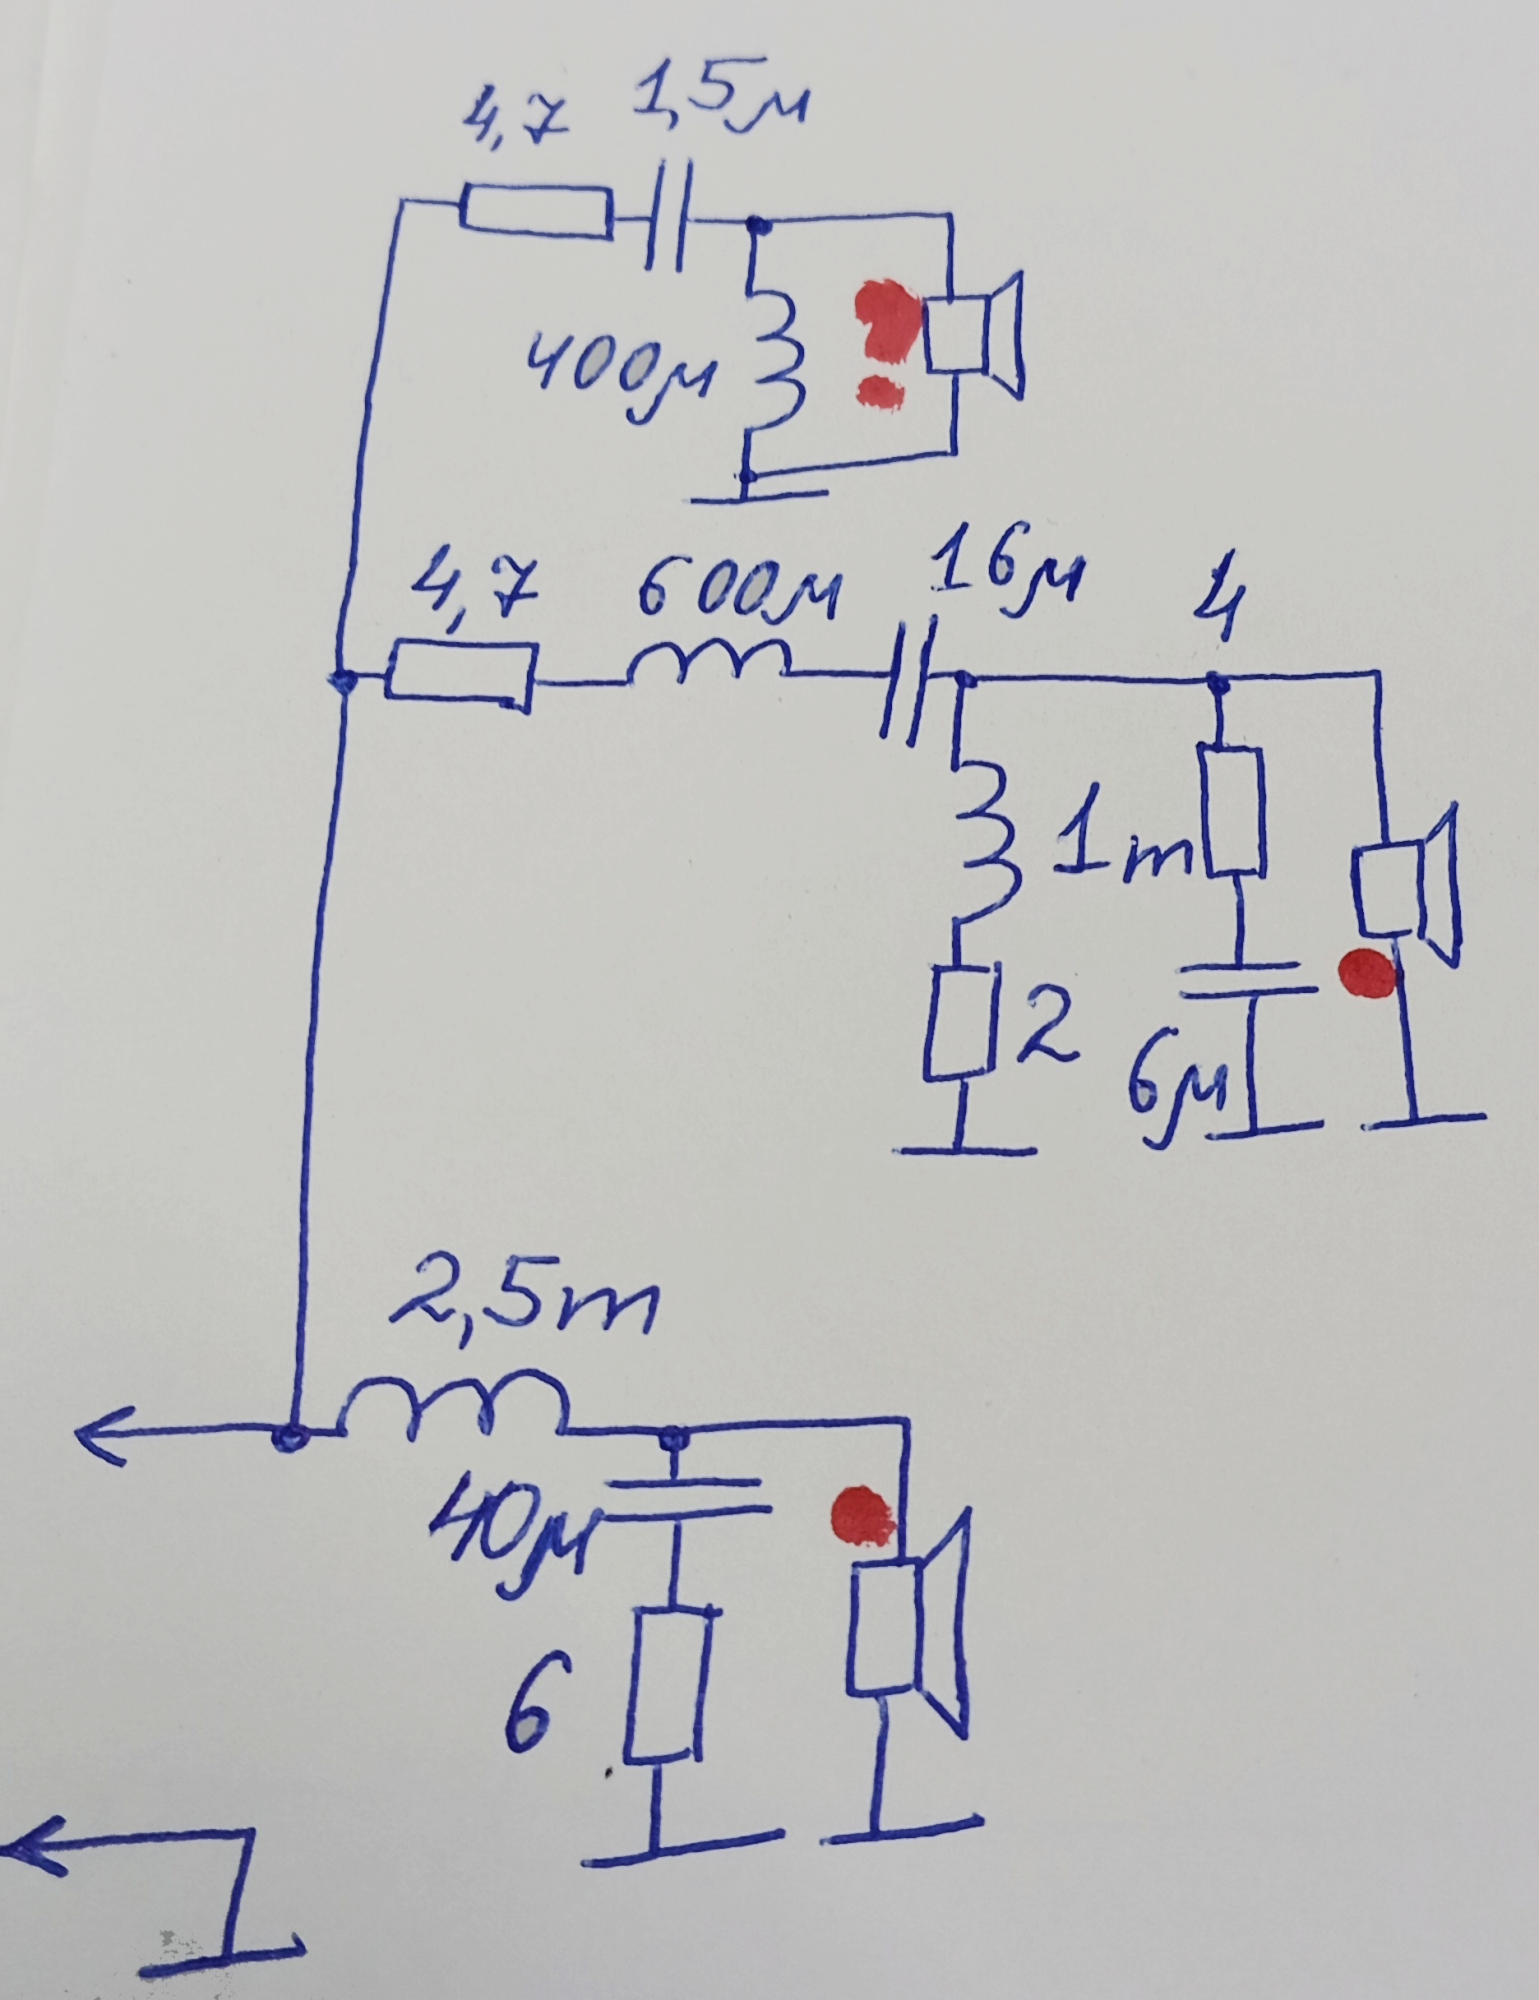 4,7 1,5м
400м
4,7 600м 16м 4
1m
2
6м
2,5m
40м
6